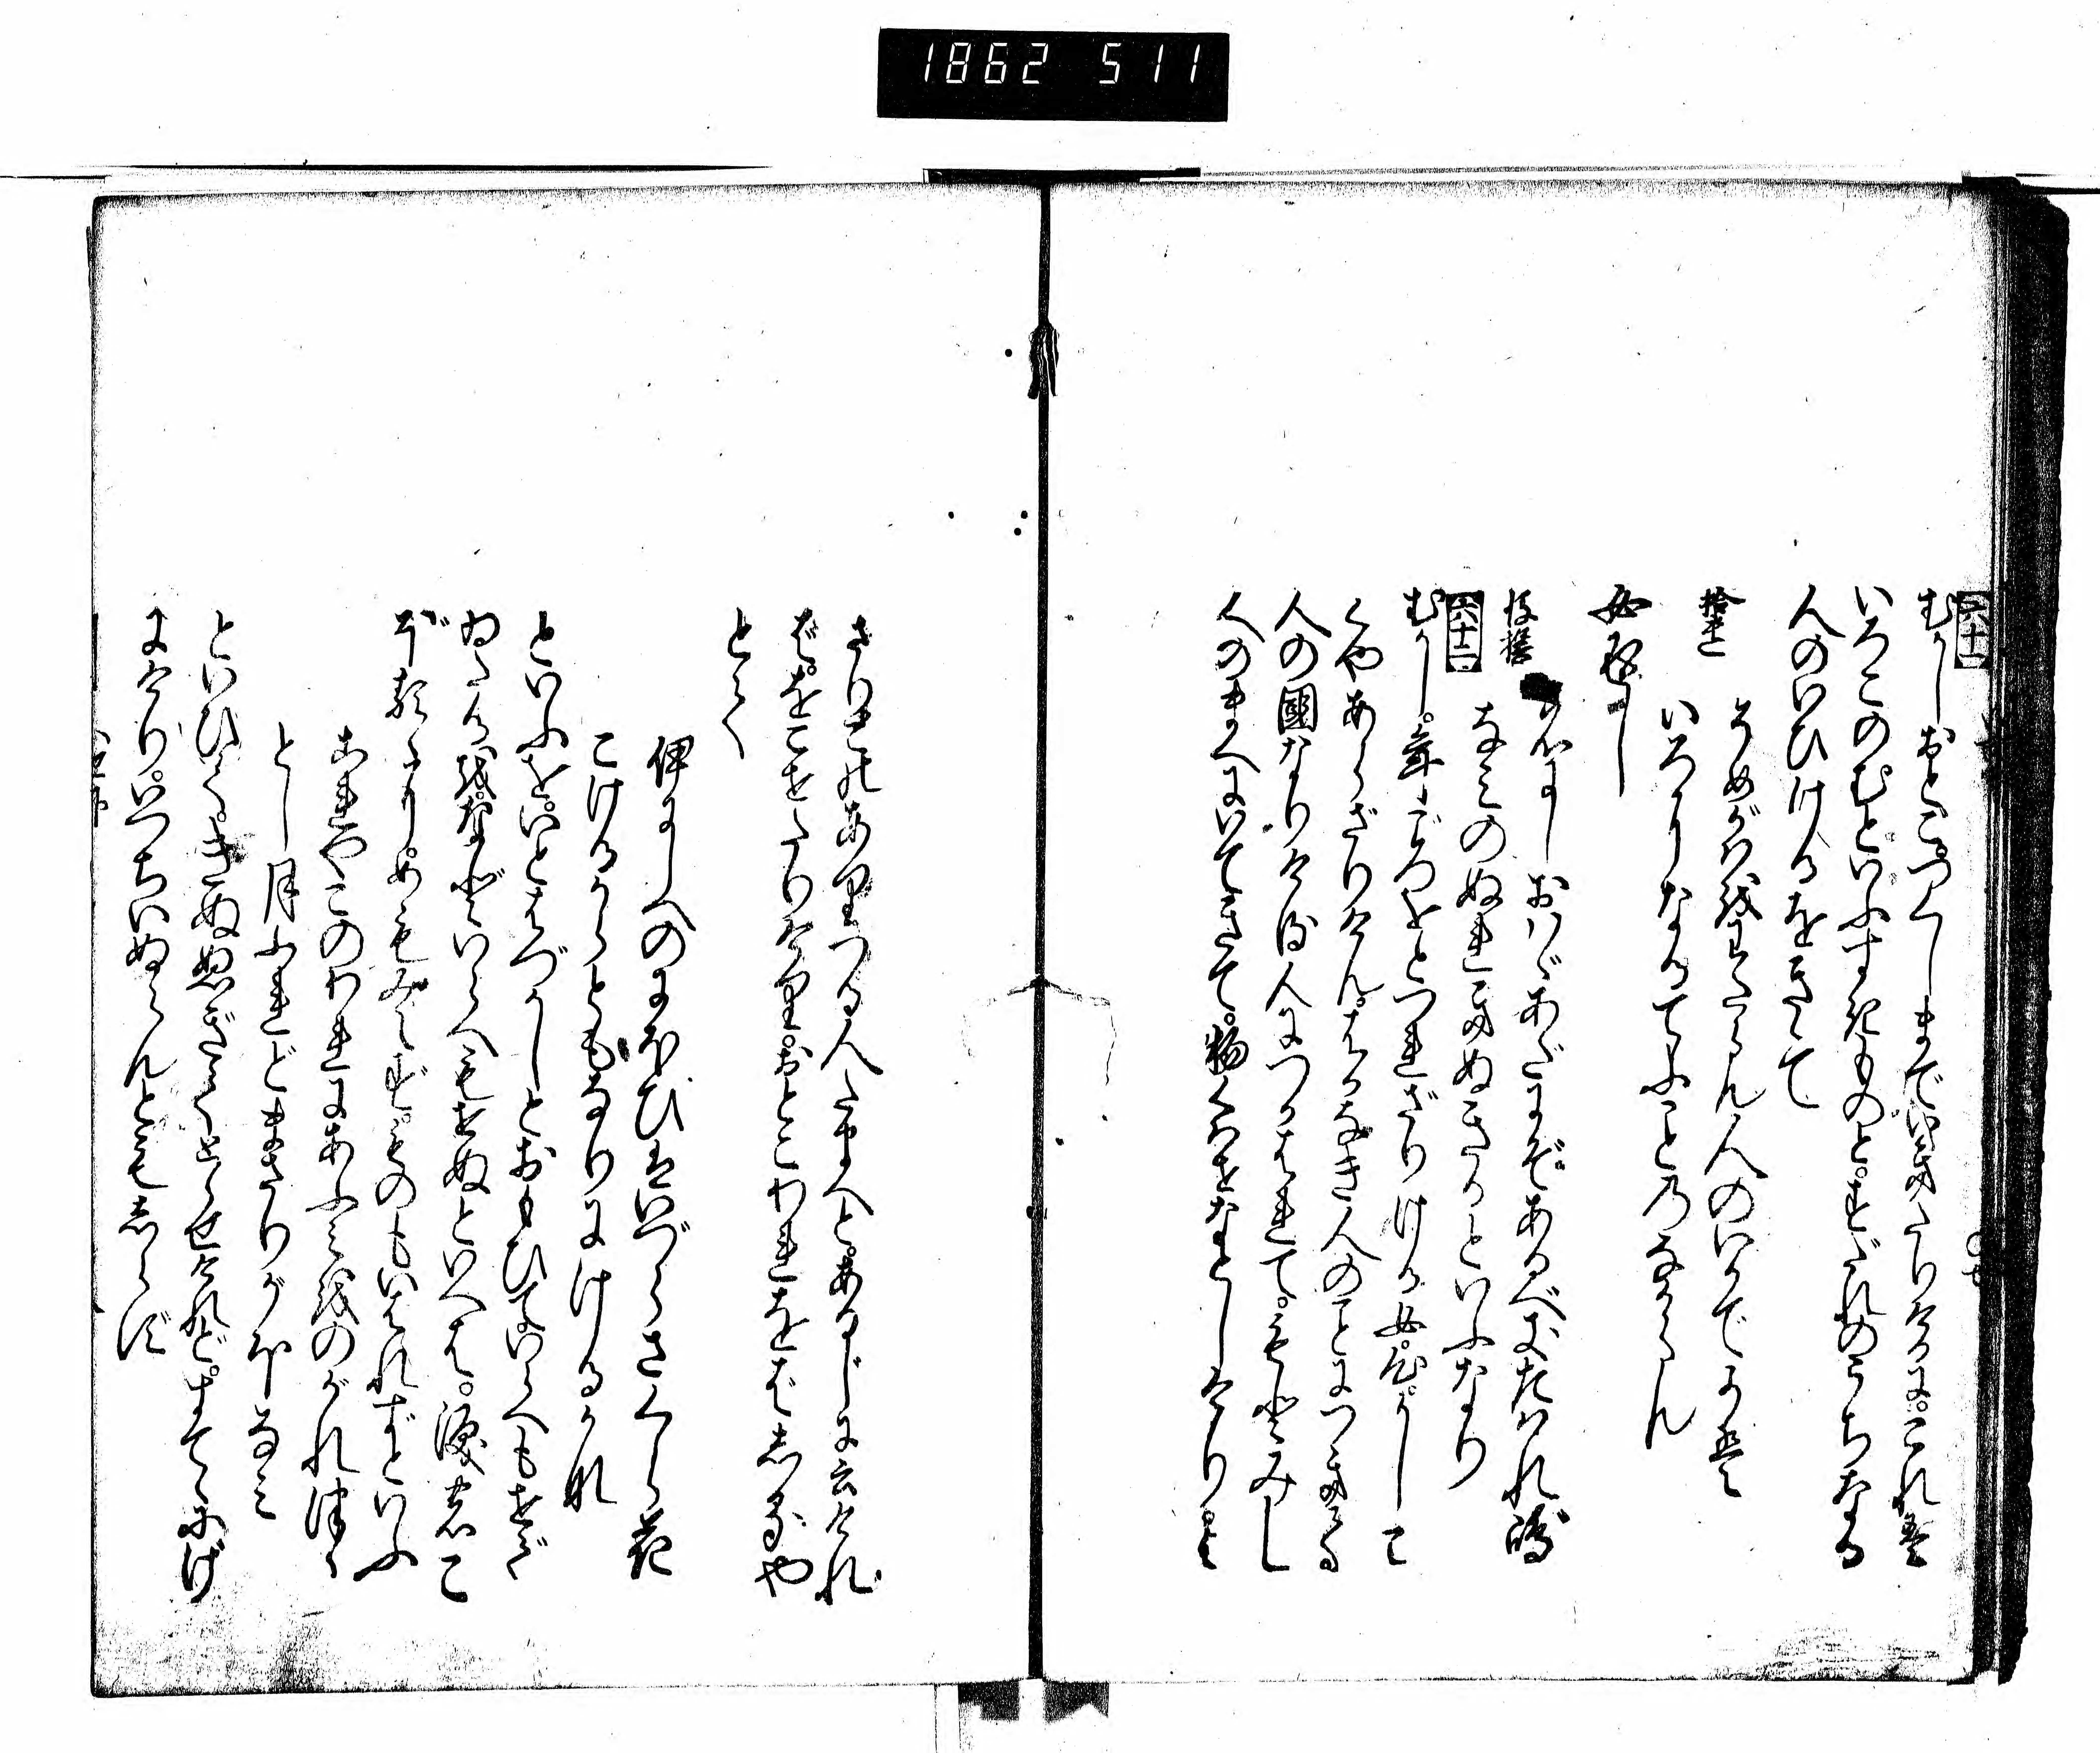 1862 511
六十一
むかしおとこ。つくしまでいきたりけるに。これは
いろこのむといふすき物と。すだれのうちなる
人のいひけるをきゝて
拾遺
そめがはをわたらん人のいかでかは
いろになるてふことのなからん
女返し
後撰
名にしおはゞあだにぞあるべきたはれ嶋
なみのぬれきぬきるといふなり
六十二
むかし。年ごろをとづれざりける女。心かしこ
くやあらざりけん。はかなき人のことにつきて
人の國なりける人につかはれて。もとみし
人のまへにいできて。物くはせなどしけりよ
さりこのありつる人たまへと。あるじに云けれ
ば。をこせたりけり。おとこわれをばしるや
とて
伊にしへのにほひはいづらさくら花
こけるからともなりにけるかな
といふを。いとはづかしとおもひていらへもせで
ゐたるを。などいらへもせぬといへば。涙のこ
ぼるゝに。めもみえず。ものもいはれずといふ
これやこのわれにあふみをのがれつゝ
とし月ふれどまさりがほなみ
といひて。きぬぬぎてとらせけれど。すてゝにげ
にけり。いづちいぬらんともしらず